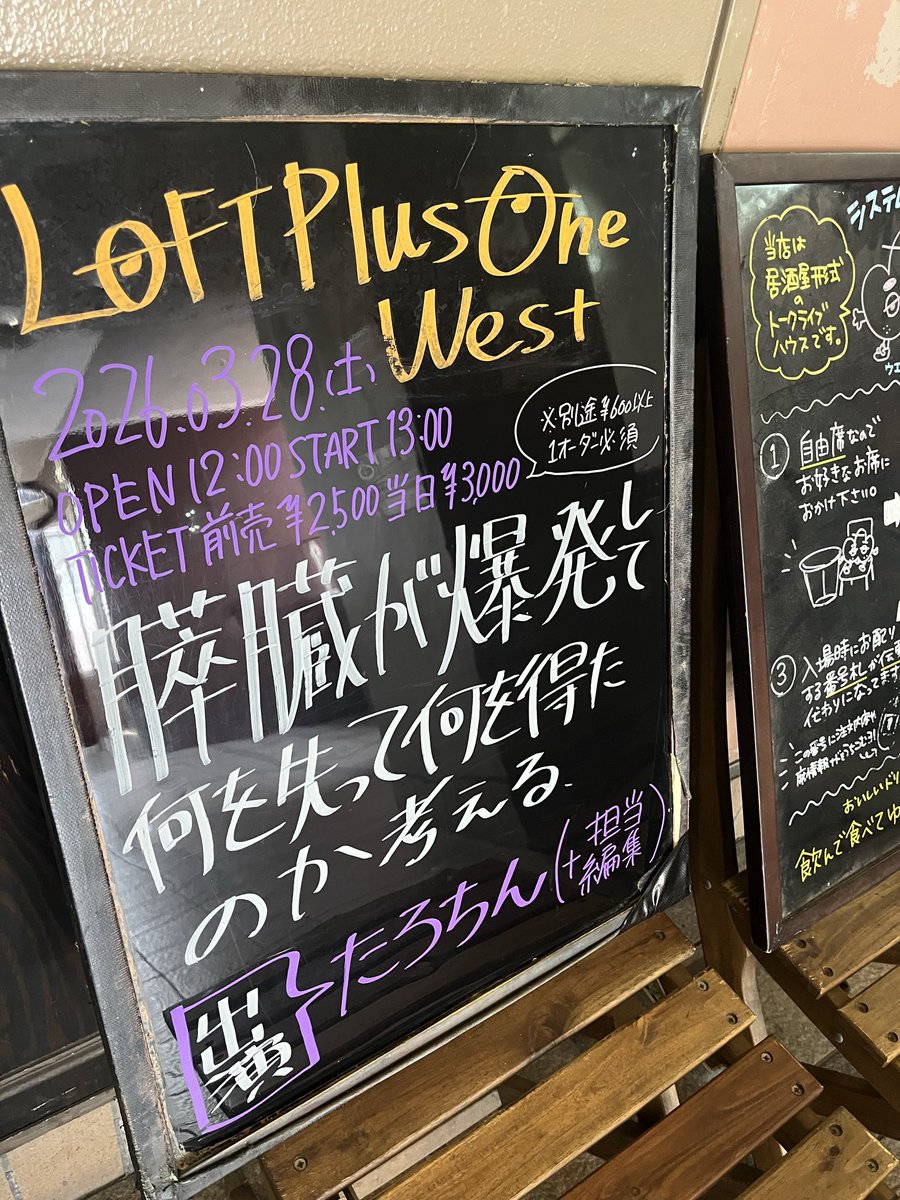 LOFT PlusOne
West
2026.03.28.(土)
OPEN 12:00 START 13:00
TICKET 前売¥2,500 当日¥3,000
※別途¥600以上
1オーダー必須
膵臓が爆発して
何を失って何を得た
のか考える、
出演
たろちん(+担当編集)
システム
当店は
居酒屋形式
の
トークライブ
ハウスです。
① 自由席なので
お好きなお席に
おかけ下さい。
③ 入場時にお配り
する番号札が伝
代わりになってます
この番号に注文内容や
おいしいドリ
飲んで食べてゆ